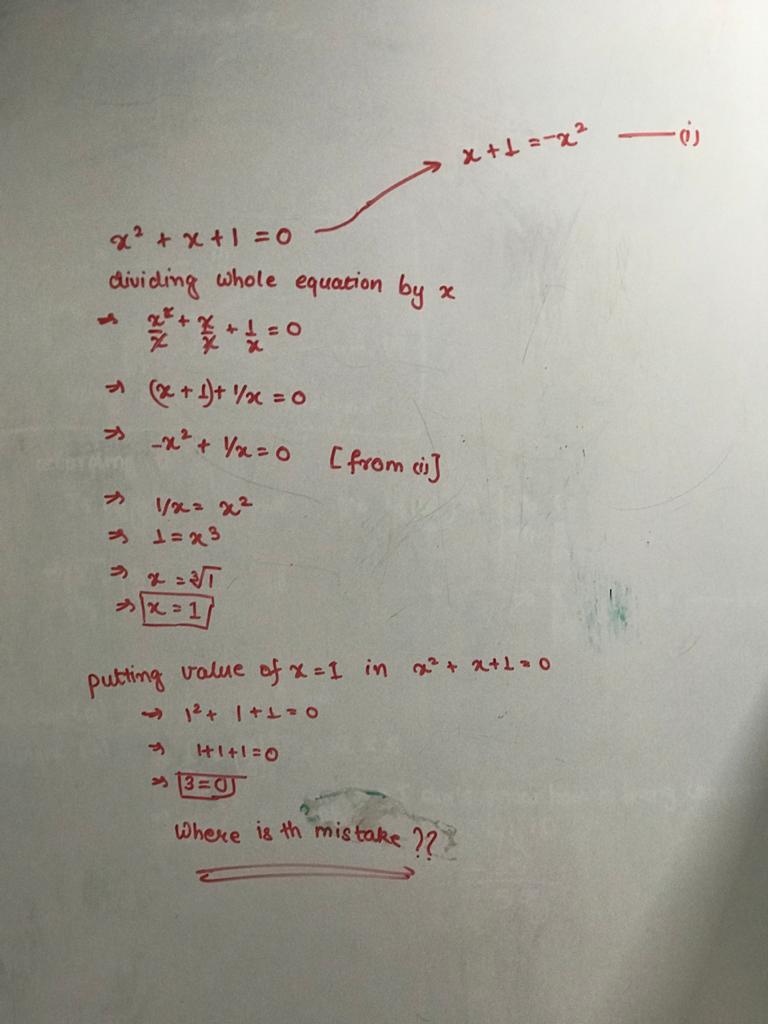 x + 1 = -x² —— (i)
x² + x + 1 = 0
dividing whole equation by x
⇒ x²/x + x/x + 1/x = 0
⇒ (x + 1) + 1/x = 0
⇒ -x² + 1/x = 0 [from (i)]
⇒ 1/x = x²
⇒ 1 = x³
⇒ x = ∛1
⇒ x = 1
putting value of x = 1 in x² + x + 1 = 0
→ 1² + 1 + 1 = 0
⇒ 1+1+1 = 0
⇒ 3 = 0
Where is th mistake ??